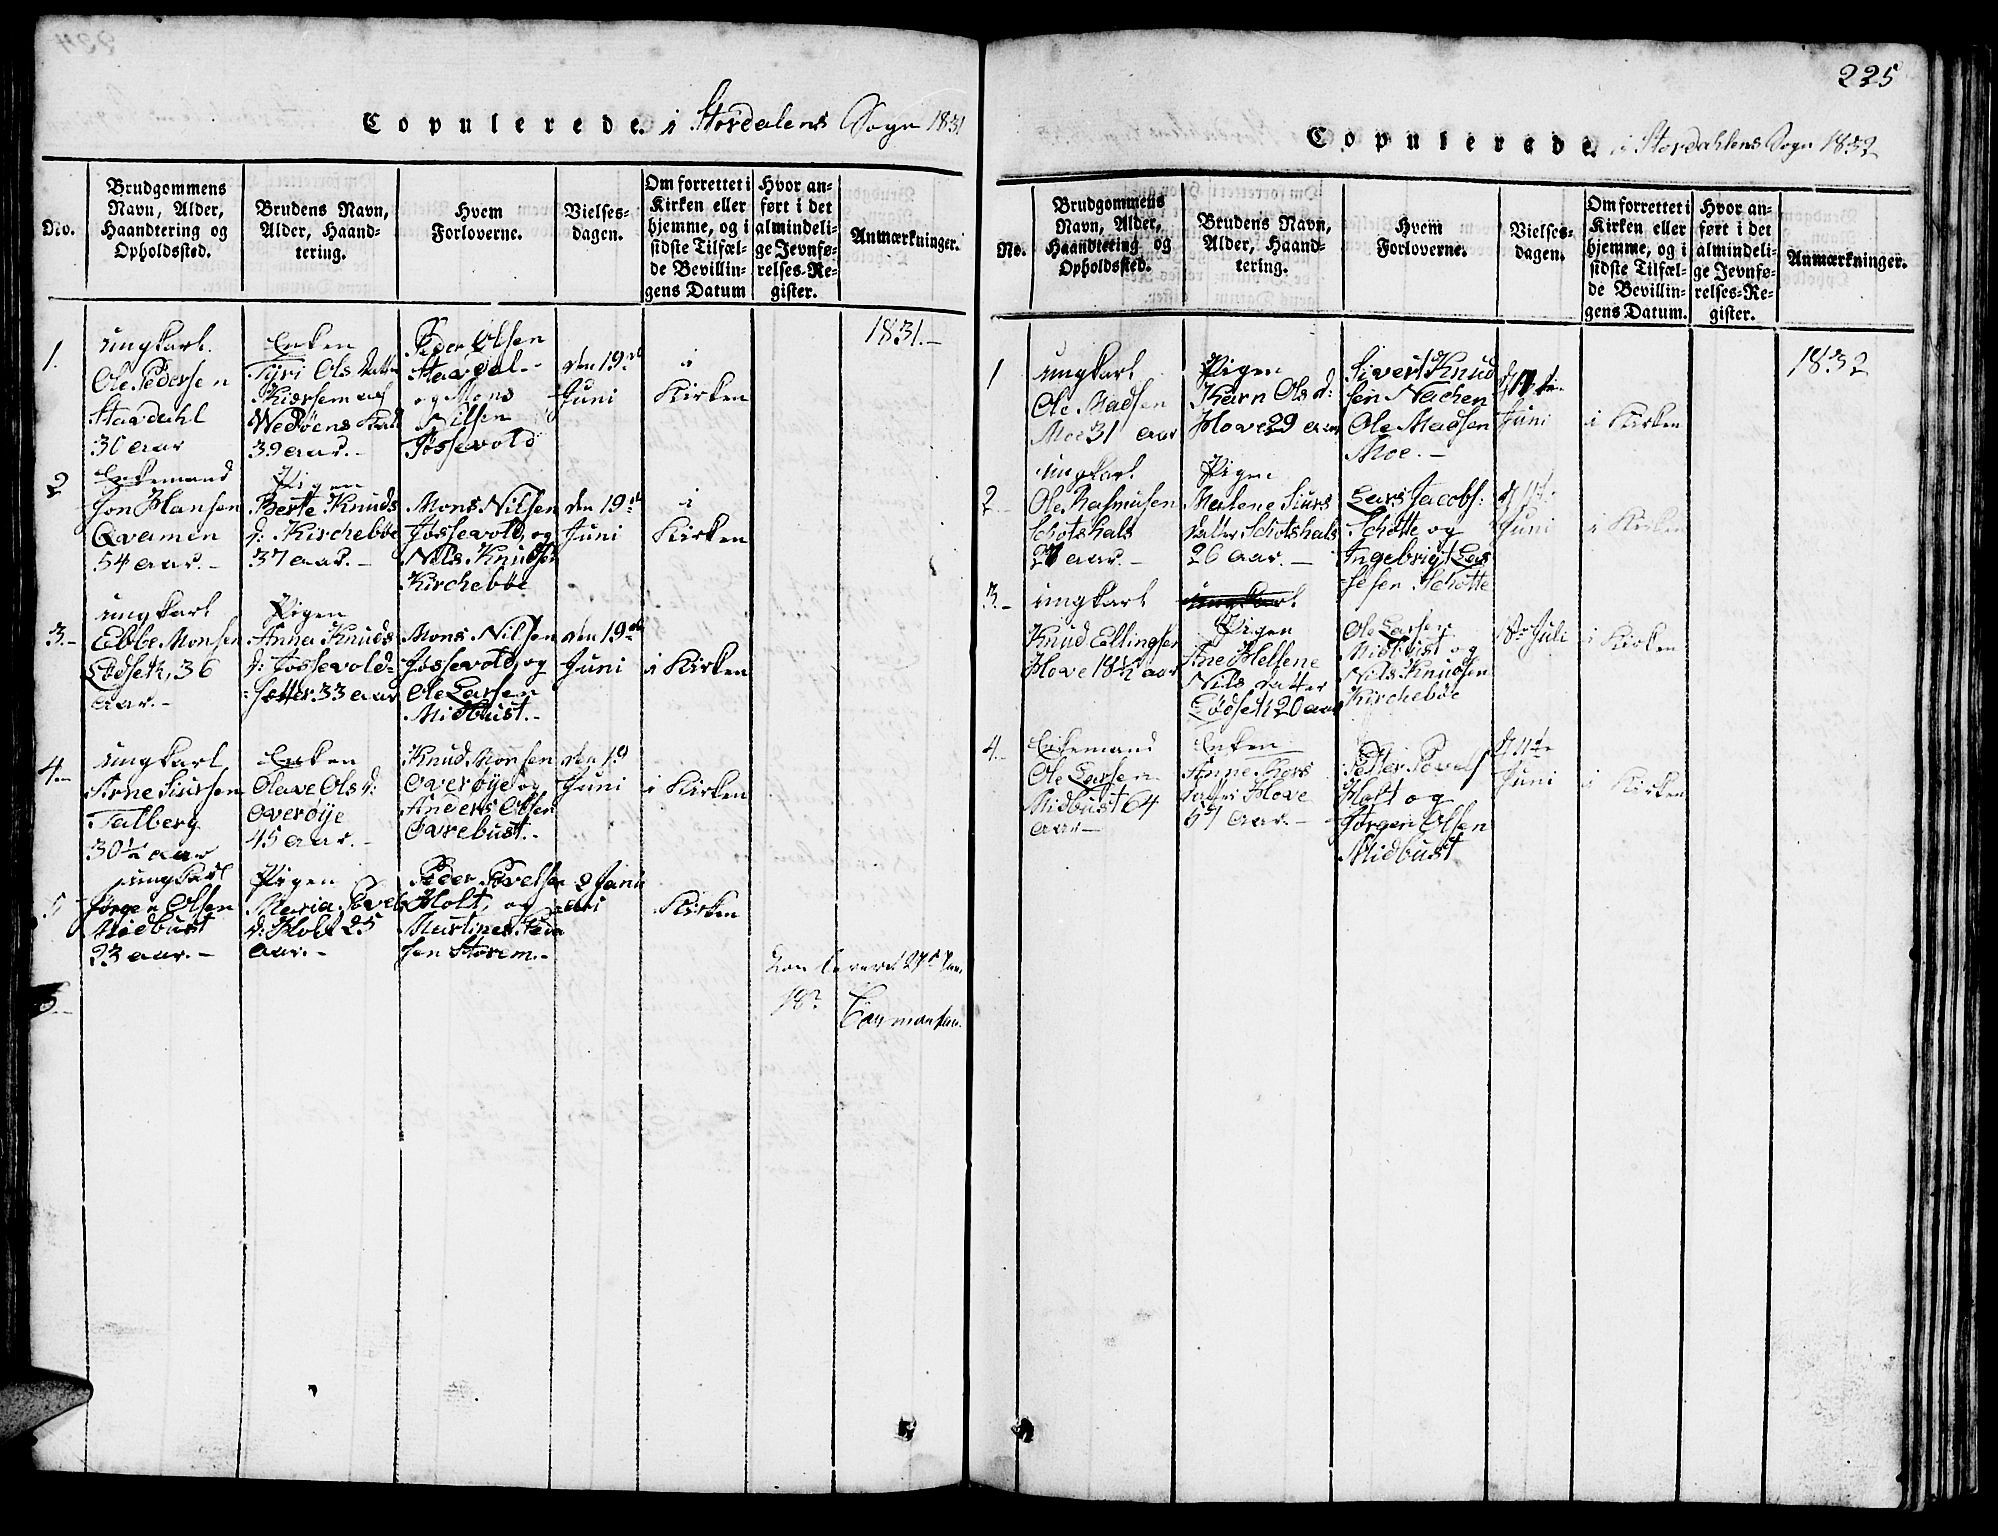 Copulerede i Stordalens Sogn 1831
No.
Brudgommens
Navn, Alder,
Haandtering og
Opholdssted.
Brudens Navn,
Alder, Haand-
tering.
Hvem
Forloverne.
Vielses-
dagen.
Om forrettet i
Kirken eller
hjemme, og i
sidste Tilfæl-
de Bevillin-
gens Datum
Hvor an-
ført i det
almindeli-
ge Jevnfø-
relses-Re-
gister.
Anmærkninger.
1831.-
1.
ungkarl.
Ole Pedersen
Stavdahl
30 aar
Enken
Tyri Ols datter
Kiersem
Wedøens
39 aar.-
Peder Olsen
Stavdal-
og Mons
Nilsen
Jøssevold
den 19de
Juni
i
Kirken
2
Enkemand
Jon Hansen
Qvamen
54 aar.-
Pigen
Berte Knuds
d: Kirchebøe
37 aar.-
Mons Nilsen
Jøssevold, og
Nils Knudsen
Kirchebøe
den 19de
Juni
i
Kirken
3.-
ungkarl
Ebbe Monsen
Lødseth, 36
aar.-
Pigen
Anna Knuds
d: Jøssevold-
sætter 33 aar
Mons Nilsen
Jøssevold, og
Ole Larsen
Midbust.-
den 19de
Juni
i Kirken
4.-
ungkarl
Arne Siursen
Talberg
30½ aar
Enken
Olave Ols d:
Overøije
45 aar.-
Knud Monsen
Overøije og
Anders Olsen
Øvrebust.-
den 19
Juni
i Kirken
5
ungkarl
Jørgen Olsen
Midbust
23 aar.-
Pigen
Maria Povels
d: Holt 25
aar.-
Peder Povelsen
Holt, og
Martines Peder
sen Storem.-
2 Janu
ari
Kirken
5.-
225
Copulerede i Stordahlens Sogn 1832
No.
Brudgommens
Navn, Alder,
Haandtering og
Opholdssted.
Brudens Navn,
Alder, Haand-
tering.
Hvem
Forloverne.
Vielses-
dagen.
Om forrettet i
Kirken eller
hjemme, og i
sidste Tilfæl-
de Bevillin-
gens Datum.
Hvor an-
ført i det
almindeli-
ge Jevnfø-
relses-Re-
gister.
Anmærkninger.
1832
1
ungkarl
Ole Madsen
Moe 31 aar
Pigen
Karn Ols d:
Hove 29 aar
Sivert Knud
sen Nachen
Ole Madsen
Moe.-
Juni
i Kirken
2.-
ungkarl
Ole Rasmusen
Schotshals
aar.-
Pigen
Marlene Siurs
datter Schotshals
26 aar.-
Lars Jacobs:
Schotte og
Ingebrigt Las
sesen Schotte
d 11te
Juni
i Kirken
3.-
ungkarl
Knud Ellingsen
Hove 18½ aar
ungkarl
Pigen
Ane Helsene
Nils datter
Lødset 20 aar
Ole Larsen
Midbust og
Nils Knudsen
Kirchebøe
Juli
i Kirken
4.-
Enkemand
Ole Larsen
Midbust 64
aar-
Enken
Anne Thors
datter Hove
aar.-
Petter Povels
Holt og
Jørgen Olsen
Midbust
d 11te
Juni
i Kirken